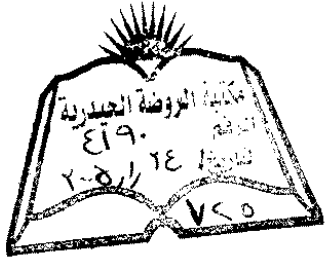 مكتبة الروضة الحيدرية
الرقم ٤١٩٠
التاريخ ٢٤ /
٧٢٥